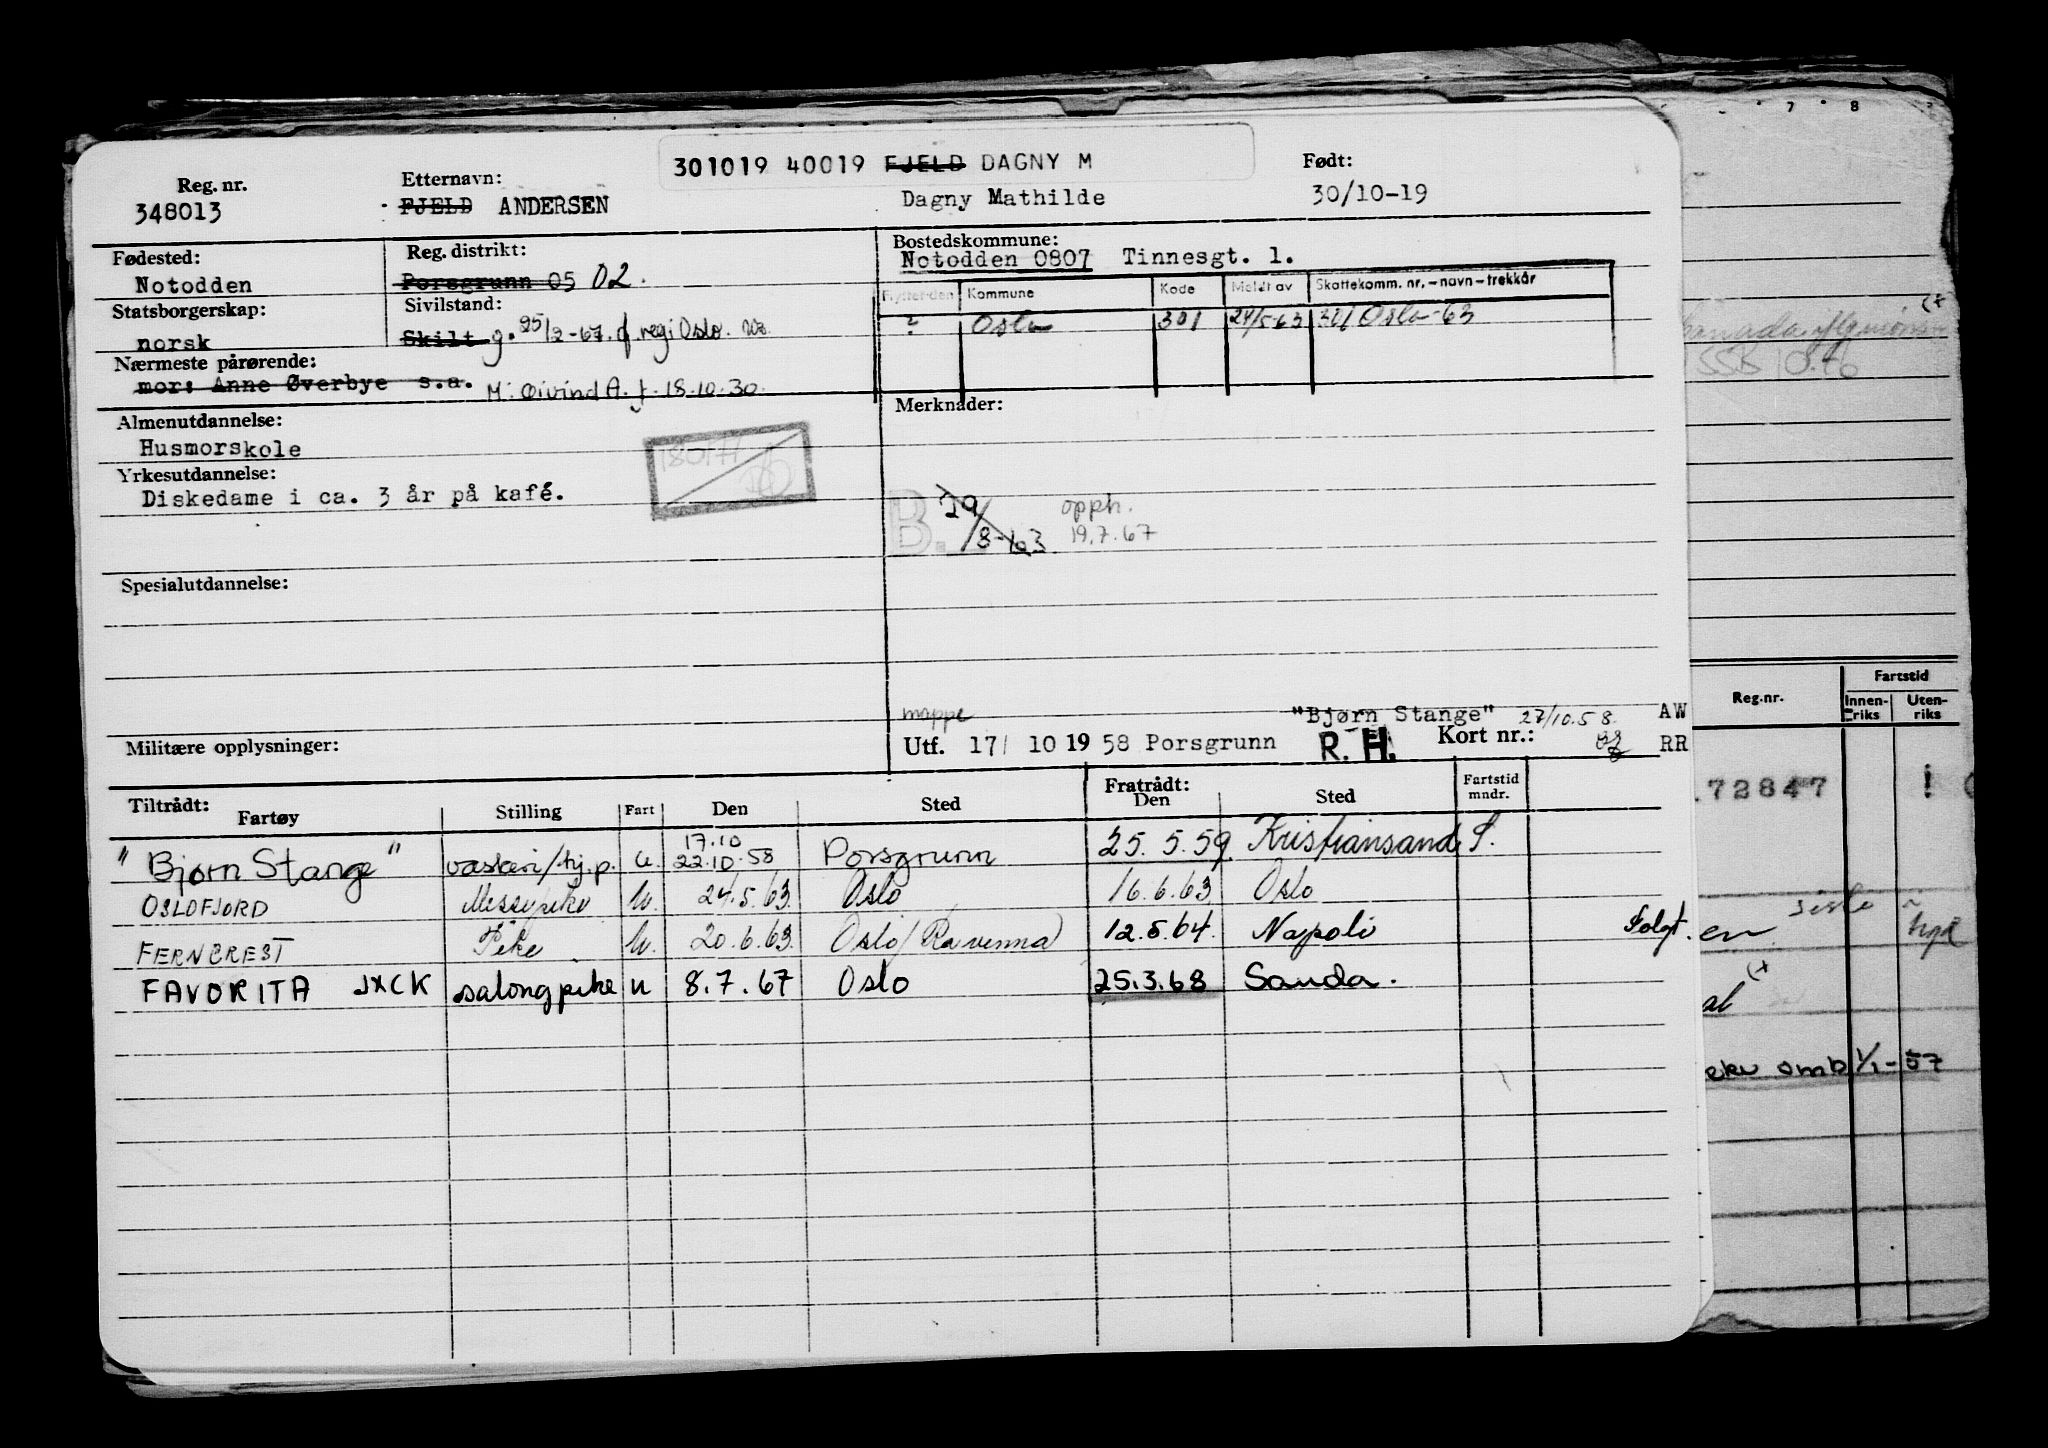 301019 40019 FJELD DAGNY M
Reg. nr.
348013
Etternavn:
FJELD ANDERSEN
Dagny Mathilde
Født:
30/10-19
Fødested:
Notodden
Reg. distrikt:
Porsgrunn 05 02.
Bostedskommune:
Notodden 0807 Tinnesgt. 1.
Statsborgerskap:
norsk
Sivilstand:
Skilt g. 25/2-67. f. reg i Oslo.
Flytter den Kommune Kode Meldt av Skattekomm. nr. – navn – trekkår
Oslo 301 24/5-63 301 Oslo-63
Nærmeste pårørende:
mor: Anne Øverbye s.a. M: Øivind A. f. 18.10.30.
Almenutdannelse:
Husmorskole
Merknader:
Yrkesutdannelse:
Diskedame i ca. 3 år på kafé.
180171
B. 29/8-63 opph.
19.7.67
Spesialutdannelse:
mappe
"Bjørn Stange" 27/10.58. AW
Militære opplysninger:
Utf. 17/ 10 1958 Porsgrunn R. H. Kort nr.: RR
Tiltrådt:
Fartøy Stilling Fart Den Sted
Fratrådt:
Den Sted Fartstid
mndr.
"Bjørn Stange" vaskeri/hj.p. u. 17.10
22.10.58 Porsgrunn 25.5.59. Kristiansand S.
OSLOFJORD Messepike u. 24.5.63. Oslo 16.6.63 Oslo
FERNCREST Pike u. 20.6.63. Oslo/Ravenna) 12.5.64. Napoli Solgt.
FAVORITA JXCK salongpike u 8.7.67 Oslo 25.3.68 Sauda.
7 8
SSB 10.46
Reg.nr. Fartstid
Innen-
riks Uten-
riks
72847
siste
en
ekv omb 1/1-57